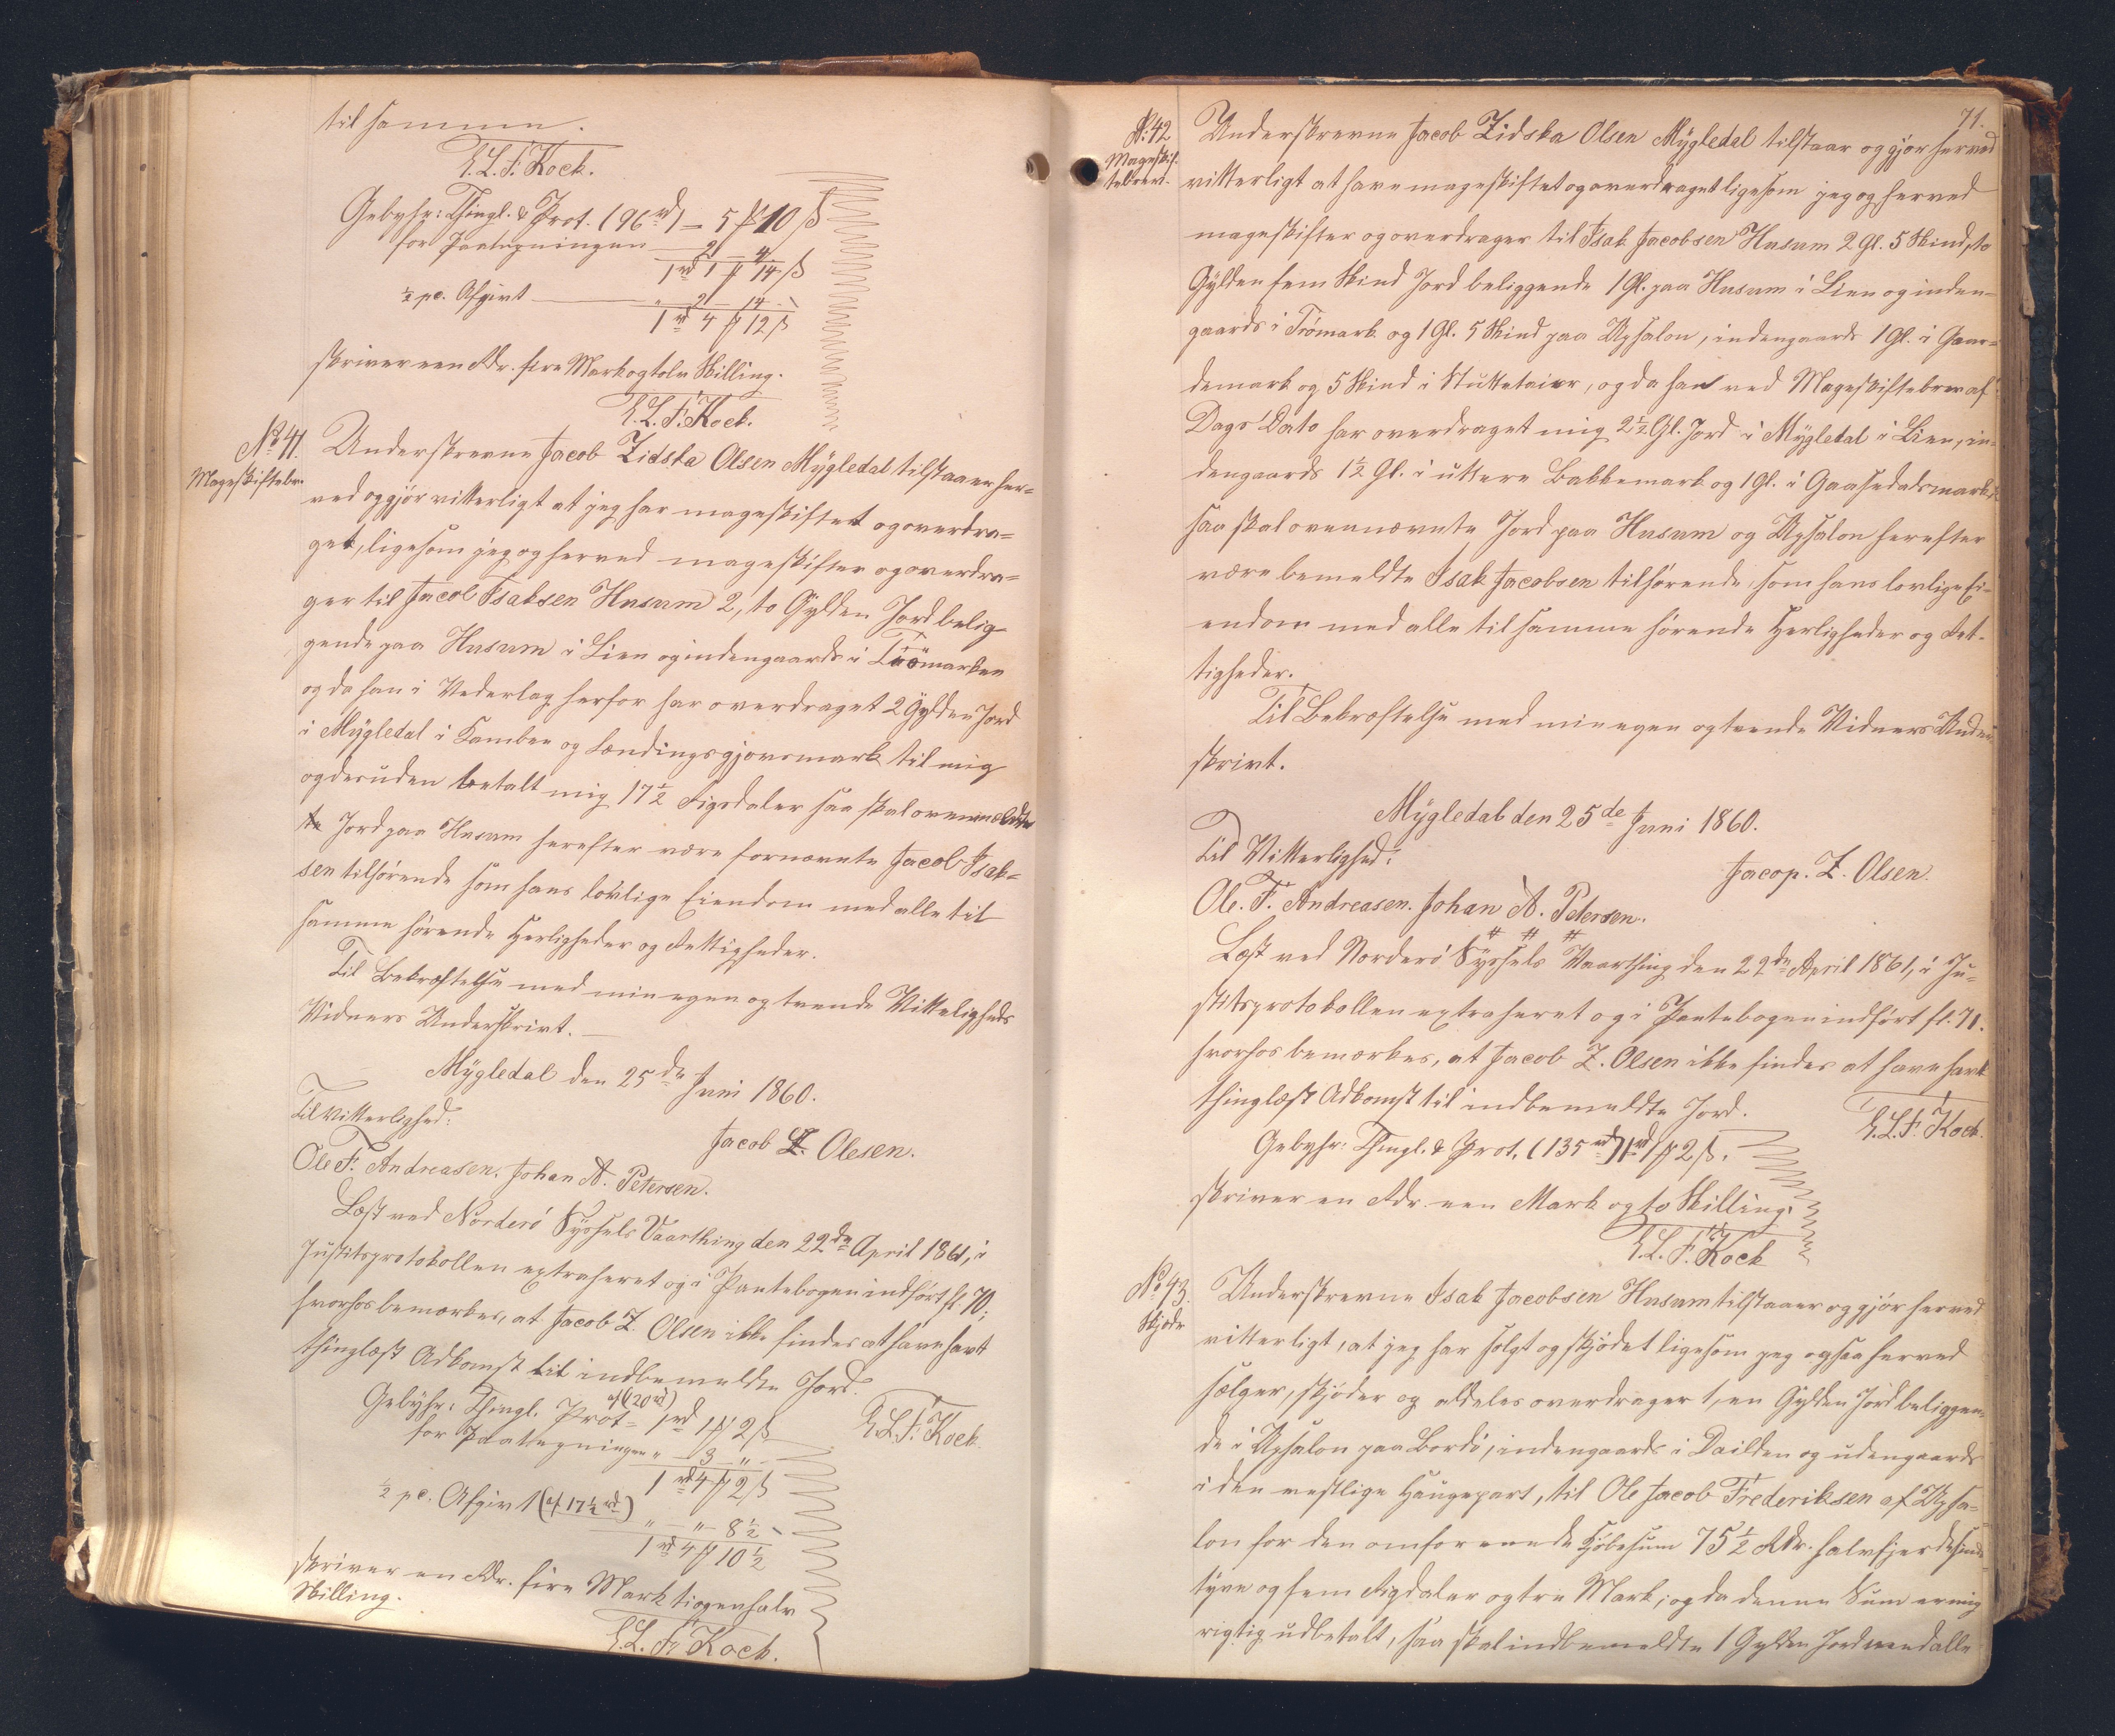 til sammen.
E.L.F. Koch.
Gebyhr: Thingl. & Prot. (96 rd) = 5 ꝳ 10 ß
for Paategningen — 2 — 4
1 rd 1 ꝳ 14 ß
½ pc. Afgivt — " 2 — 14 -
1 rd 4 ꝳ 12 ß
skriver een Rdr. fire Mark og tolv Skilling.
E.L.F. Koch.
No 41.
Mageskiftebr.
Underskrevne Jacob Zidska Olsen Mygledal tilstaaer her=
ved og gjör vitterligt at jeg har mageskiftet og overdra=
get, ligesom jeg og herved mageskifter og overdra=
ger til Jacob Isaksen Husum 2, to Gylden Jord belig=
gende paa Husum i Lien og indengaards i Trömarken
og da han i Vederlag herfor har overdraget 2 Gylden Jord
i Mygledal i Kamben og Lendingsgjovsmark til mig
og desuden betalt mig 17½ Rigsdaler saa skal ovenmeldte
Jord paa Husum herefter være fornævnte Jacob Isak=
sen tilhörende som hans lovlige Eiendom med alle til
samme hörende Herligheder og Rettigheder.
Til Bekræftelse med min egen og tvende Vitteligheds
Vidners Underskrivt. —
Mygledal den 25de Juni 1860.
Til Vitterlighed:
Jacob Z. Olesen.
Ole F. Andreasen. Johan A. Petersen.
Læst ved Norderö Syssels Vaarthing den 22de April 1861, i
Justitsprotokollen extraheret og i Pantebogen indfört fl. 70;
hvorhos bemærkes, at Jacob Z. Olsen ikke findes at have havt
thinglæst Adkomst til indbemeldte Jord.
E.L.F. Koch.
Gebyhr: Thingl. Prot = af (120 rd) 1 rd 1 ꝳ 2 ß
for Paategningen " — 3 — "
1 rd 4 ꝳ 2 ß
½ pc. Afgivt (af 17½ rd) " — " — 8½
1 rd 4 ꝳ 10½
skriver en Rdr. fire Mark ti og en halv
Skilling.
E.L.F. Koch.
71.
No 42
Mageskif-
tebrev.
Underskrevne Jacob Zidska Olsen Mygledal tilstaar og gjör herved
vitterligt at have mageskiftet og overdraget ligesom jeg og herved
mageskifter og overdrager til Isak Jacobsen Husum 2 Gl. 5 Skind, to
Gylden fem Skind Jord beliggende 1 Gl. paa Husum i Lien og inden=
gaards i Trömark og 1 Gl. 5 Skind paa Uppsalon, indengaards 1 Gl. i Gaar=
demark og 5 Skind i Stuttataier, og da han ved Mageskiftebrev af
Dags Dato har overdraget mig 2½ Gl. Jord i Mygledal i Lien, in=
dengaards 1½ Gl. i uttere Bakkemark og 1 Gl. i Gaasedalsmark,
saa skal ovennævnte Jord paa Husum og Upsalon herefter
være bemeldte Isak Jacobsen tilhörende, som hans lovlige Ei=
endom med alle til samme hörende Herligheder og Ret=
tigheder.
Til Bekræftelse med min egen og tvende Vidners Under=
skrivt.
Mygledal den 25de Juni 1860.
Til Vitterlighed:
Jacop. Z. Olsen.
Ole. F. Andreasen. Johan A. Petersen.
# # #
Læst ved Norderö Syssels Vaarthing den 22de April 1861, i Ju=
stitsprotokollen extraheret og i Pantebogen indfört fl. 71.
hvorhos bemærkes, at Jacob Z. Olsen ikke findes at have havt
thinglæst Adkomst til indbemeldte Jord.
E.L.F. Koch.
Gebyhr: Thingl. & Prot. (135 rd) 1 rd 1 ꝳ 2 ß.
skriver en Rdr. een Mark og to Skilling.
E.L.F. Koch
No 43.
Skjöde
Underskrevne Isak Jacobsen Husum tilstaaer og gjör herved
vitterligt, at jeg har solgt og skjödet ligesom jeg ogsaa herved
sælger, skjöder og aldeles overdrager 1, en Gylden Jord beliggen=
de i Upsalon paa Bordö, indengaards i Dailden og udengaards
i den vestlige Haugepart, til Ole Jacob Frederiksen af Upsa=
lon for den omforenede Kjöbesum 75½ Rdr. halvfjerdsinds
tyve og fem Rigsdaler og tre Mark; og da denne Sum er mig
rigtig udbetalt, saa skal indbemeldte 1 Gylden Jord med alle